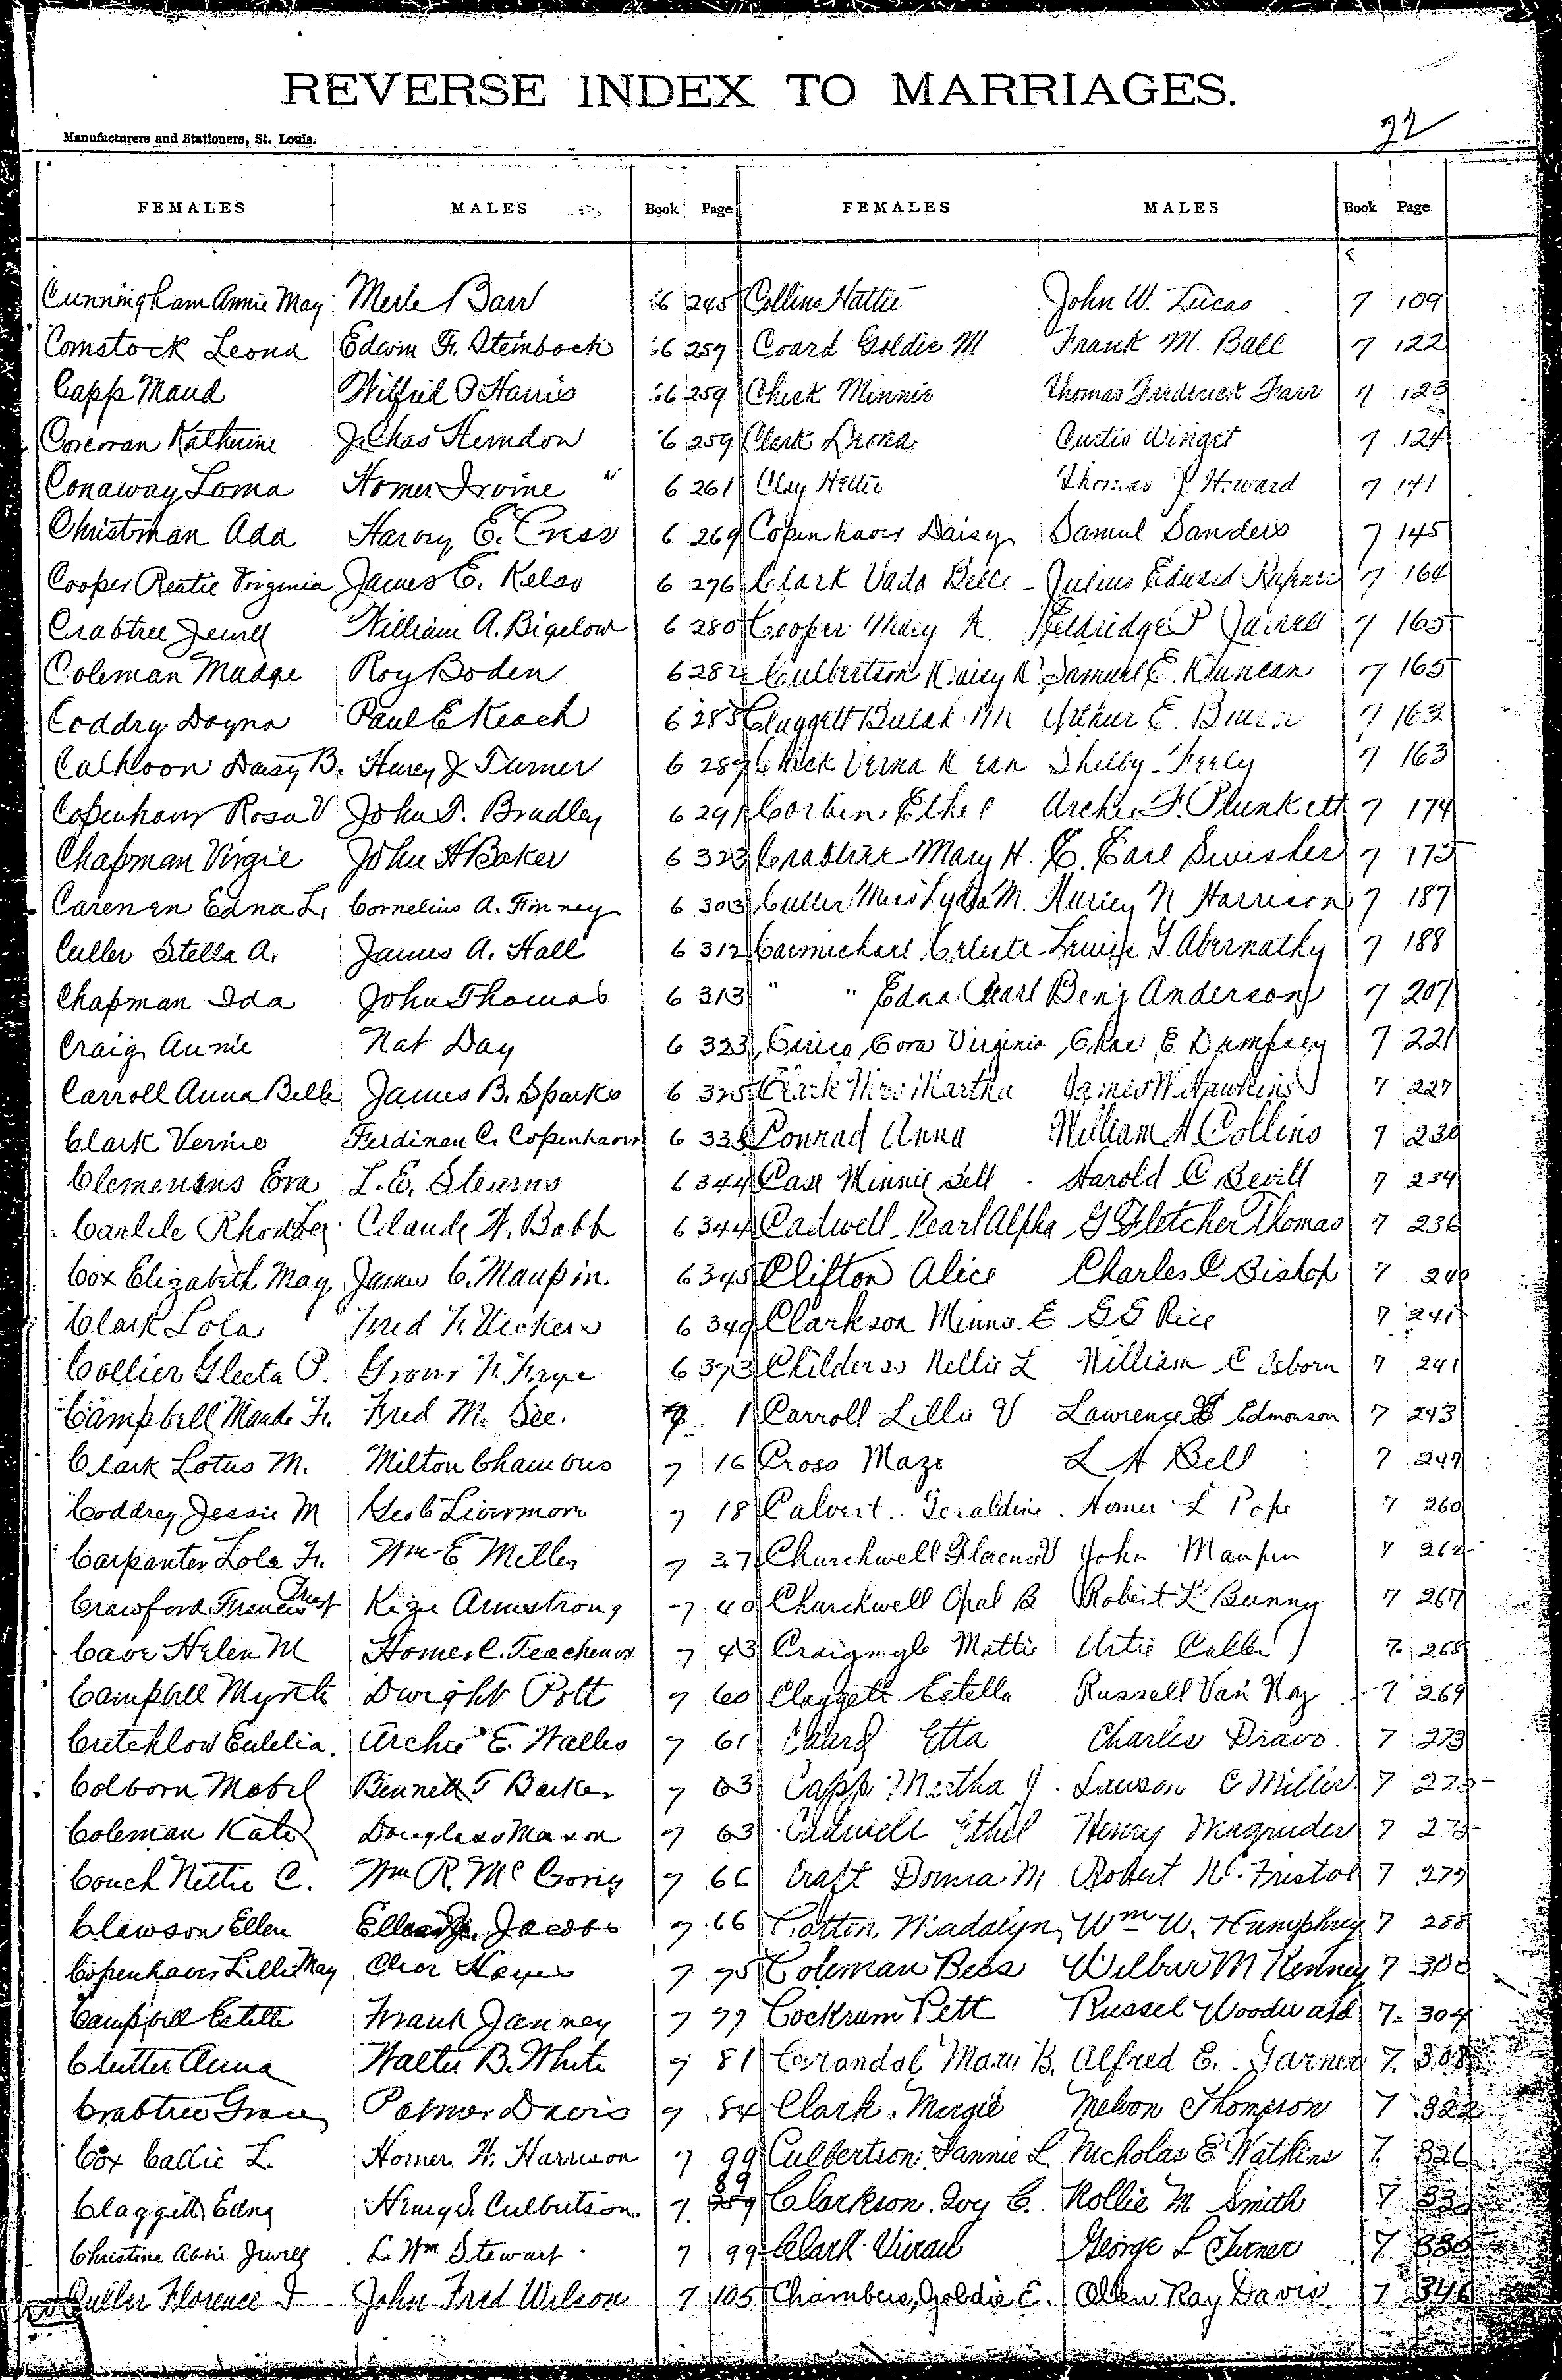 REVERSE INDEX TO MARRIAGES.
Manufacturers and Stationers, St. Louis.
22
FEMALES MALES Book Page FEMALES MALES Book Page
Cunningham Annie May Merle Barr 6 245 Collins Hattie John W. Lucas 7 109
Comstock Leona Edwin Fr. Steinbock 6 257 Coard Goldie M. Frank M. Ball 7 122
Capp Maud Wilfred P Harris 6 259 Chick Minnie Thomas Fredrick Farr 7 123
Corcoran Kathrine J. Chas Herndon 6 259 Clark Leona Curtis Winget 7 124
Conaway Loma Homer Irvine " 6 261 Clay Hettie Thomas J. Howard 7 141
Christman Ada Harry E. Cress 6 269 Copenhaver Daisy Samul Sanders 7 145
Cooper Reatie Virginia James E. Kelso 6 276 Clark Vada Belle Julius Edward 7 164
Crabtree Jewell William A. Bigelow 6 280 Cooper Mary A. Heldridge P Jarrell 7 165
Coleman Madge Roy Boden 6 282 Culbertson Daisy D. Samuel E. Duncan 7 165
Coddry Dayna Paul E Keach 6 285 Claggett Bulah M Arthur E. 7 163
Calhoon Daisy B. Harry J Turner 6 289 Chick Verna Dean Shelby Feely 7 163
Copenhaver Rosa V John T. Bradley 6 291 Corbin Ethel Archie F. Plunkett 7 174
Chapman Virgie John H Baker 6 323 Crabtree Mary H. C. Earl Swisher 7 175
Carenen Edna L. Cornelius A. Finney 6 303 Culler Miss Lydia M. Harley N Harrison 7 187
Culler Stella A. James A. Hall 6 312 Carmichael Celeste Lewis T. Abernathy 7 188
Chapman Ida John Thomas 6 313 " " Edna Pearl Benj Anderson 7 207
Craig Annie Nat Day 6 323 Carico Cora Virginia Chas E. Dempsey 7 221
Carroll Anna Belle James B. Sparks 6 325 Clark Mrs Martha James W. Hawkins 7 227
Clark Vernie Ferdinan C. Copenhaver 6 33 Conrad Anna William A Collins 7 230
Clemensens Eva L. E. Stearns 6 344 Case Minnie Bell Harold C Bevill 7 234
Carlile Rhoda Lee Claude W. Babb 6 344 Cadwell Pearl Alpha G Fletcher Thomas 7 236
Cox Elizabeth May James C. Maupin. 6 345 Clifton Alice Charles C Bishop 7 240
Clark Lola Fred F. Vickers 6 349 Clarkson Minno. E G G Rice 7 241
Collier Gleeta P. Grover N. Frye 6 373 Childerss Nellie L William C Osborn 7 241
Campbell Maude Fr. Fred M. See. 7 1 Carroll Lillie V Lawrence E Edmonson 7 243
Clark Lotus M. Milton Chambers 7 16 Cross Maze L A Bell 7 249
Coddrey Jessie M Geo C Livermore 7 18 Calvert Geraldine Homer L Pope 7 260
Carpenter Lola Fr. Wm E Miller 7 37 Churchwell Florence V John Maupin 7 262
Crawford Frances Kizie Armstrong 7 40 Churchwell Opal B Robert L Bunny 7 267
Cave Helen M Homer C. Teachenor 7 43 Craigmyle Mattie Artie Culler 7 268
Campbell Myrtle Dwight Pott 7 60 Claggett Estella Russell Van Hoy 7 269
Critchlow Eulelia. Archie E. Walles 7 61 Etta Charles Dravo 7 273
Colborn Mabel Bennett T Barker 7 63 Capp Martha J. Lawson C Miller 7 275
Coleman Kate Douglass Maxon 7 63 Cadwell Ethel Henry Magruder 7 275
Couch Nettie C. Wm R. McCorig 7 66 Craft Donna M Robert K. Fristoe 7 277
Clawson Ellen Jacobs 7 66 Cotton, Madalyn, Wm W. Humphrey 7 288
Copenhaver Lillie May Hayes 7 75 Coleman Bess Wilbur M Kenney 7 300
Campbell Estelle Frank Janney 7 77 Cockrum Pett Russel Woodward 7 304
Clutter Anna Walter B. White 7 81 Carandal Mary B. Alfred E. Garner 7 308
Crabtree Grace Palmer Davis 7 84 Clark, Margie Melvon Thompson 7 322
Cox Callie L. Homer W. Harrison 7 99 Culbertson, Fannie L. Nicholas E Watkins 7 326
Claggett Edna Henry S. Culbertson. 7 89 Clarkson, Ivy C. Rollie M. Smith 7 33
Christine Abbie Jewell L. Wm Stewart 7 99 Clark George L Turner 7 330
Culler Florence I John Fred Wilson 7 105 Chambers, Goldie E. Allen Ray Davis 7 346